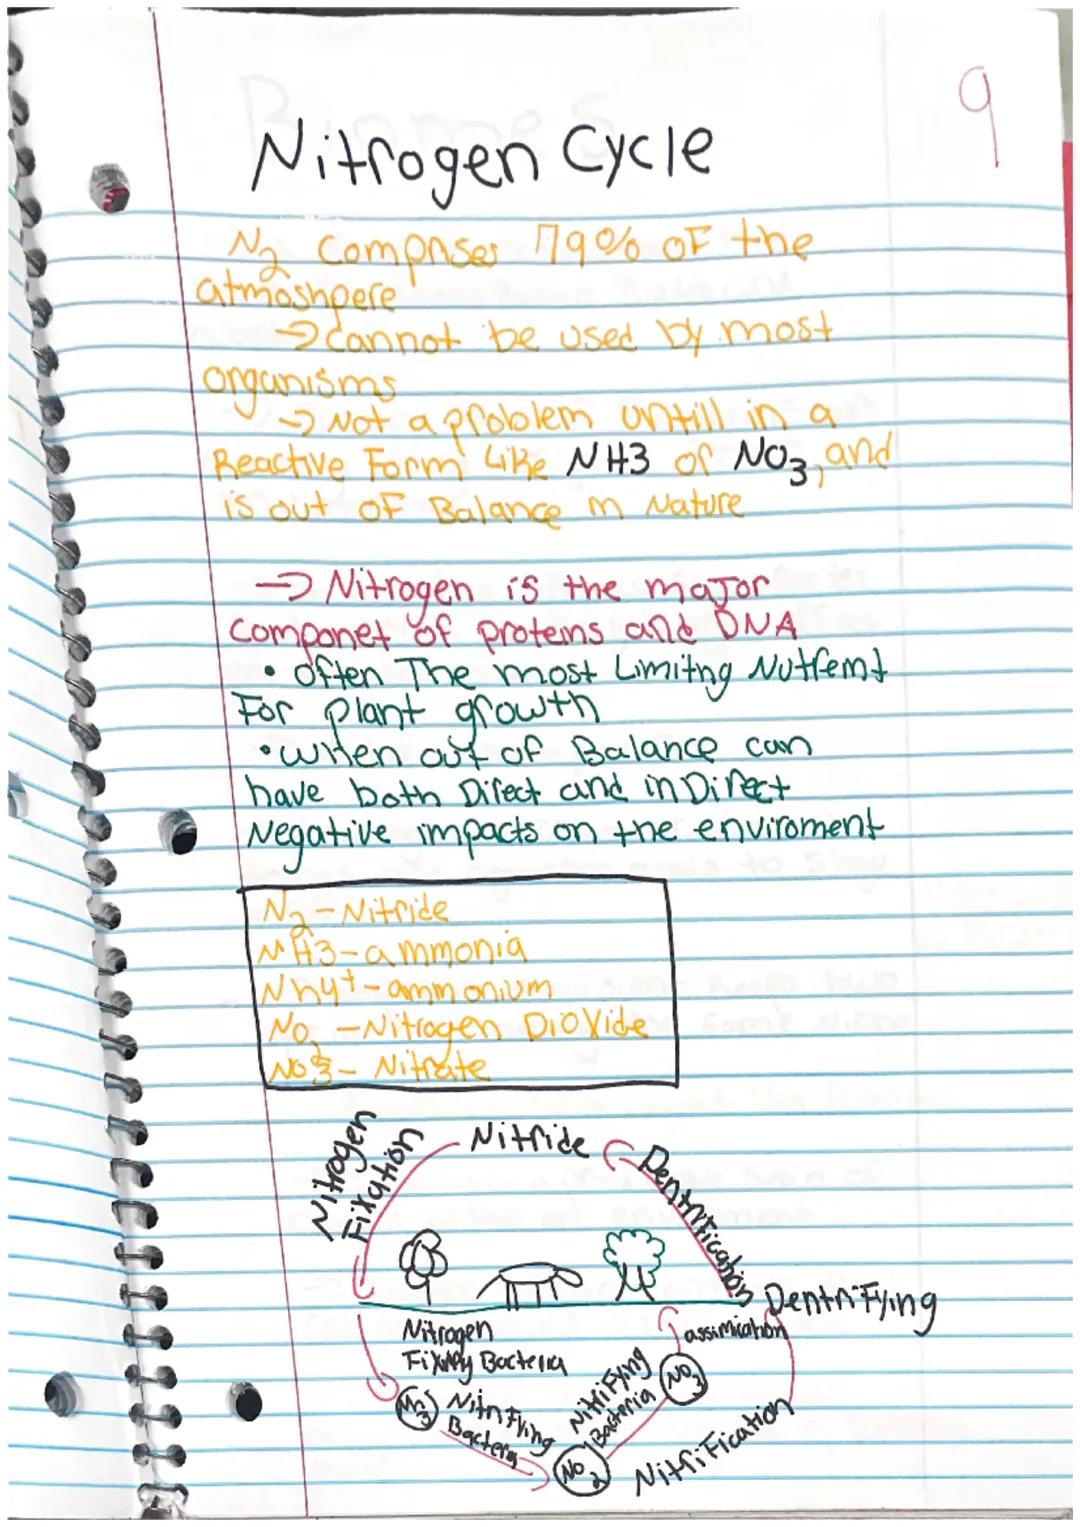 9
Nitrogen Cycle
N2 comprises 79% of the
atmoshpere
→ Cannot be used by most
organisms
→ Not a problem untill in a
Reactive Form like NH3 or NO3, and
is out of Balance in Nature
→ Nitrogen is the major
componet of proteins and DNA
• often The most Limitng Nutrient
For plant growth
• when out of Balance can
have both Direct and inDirect
Negative impacts on the enviroment
N2 - Nitride
NH3 - ammonia
Nh4+ - ammonium
NO2 - Nitrogen Dioxide
NO3 - Nitrate
Nitrogen
Fixation
Nitride
Dentrification
Dentrifying
Nitrogen
Fixing Bacteria
assimication
Nitrifying
Bacteria
Nitrifying
Bacteria
NO3
NO2
Nitrification